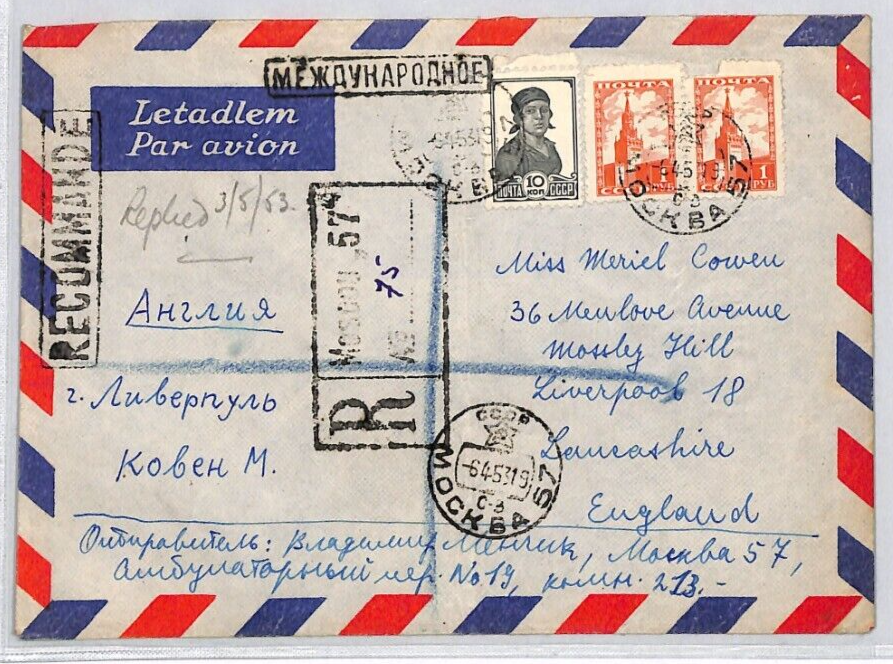 МЕЖДУНАРОДНОЕ
Letadlem
Par avion
RECOMMANDE
Replied 3/5/53.
ПОЧТА 10 КОП СССР
ПОЧТА
1 РУБ
ПОЧТА
1
РУБ
МОСКВА 57
R
Moscou „57“
№ 75
Англия
г. Ливерпуль
Ковен М.
Miss Meriel Cowen
36 Menlove Avenue
Mossley Hill
Liverpool 18
Lancashire
England
СССР
-645319
МОСКВА 57
Отправитель: Владимир Менчик, Москва 57,
Амбулаторный пер. No 19, комн. 213.-